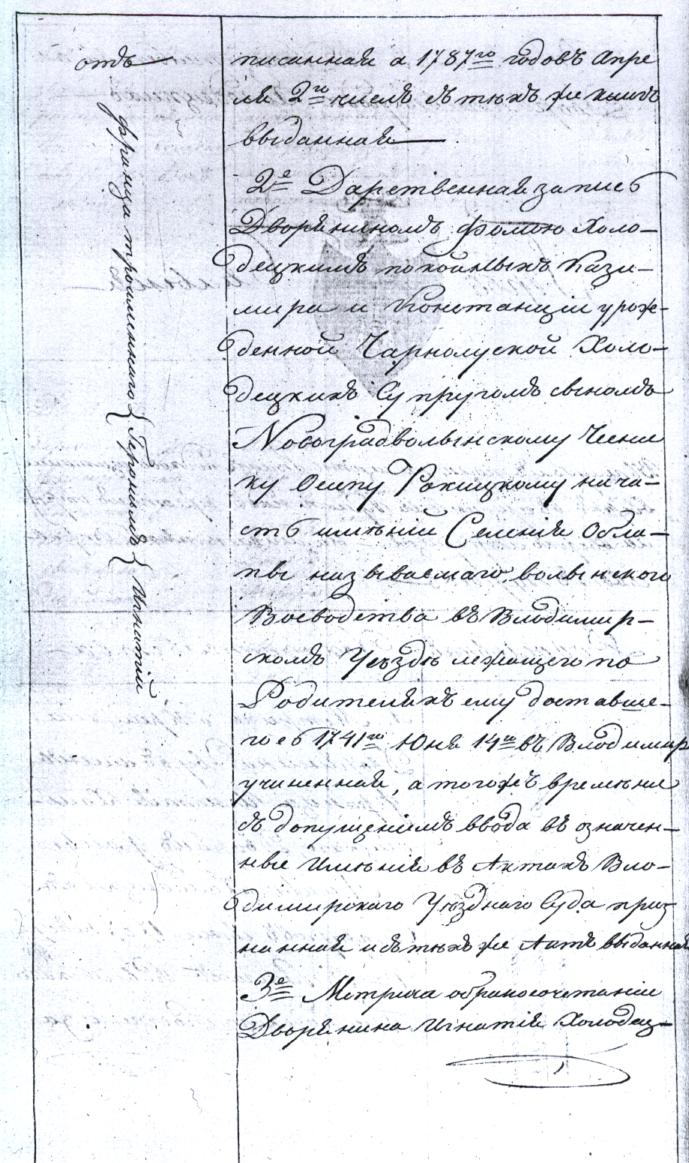 отъ
Франца троименнаго { Геронимъ { Игнатій
писанная а 1787го годовъ Апре
ля 2го числъ съ тѣхъ же книгъ
выданная
2е Дарственная запись
Дворяниномъ Фомою Холо-
децкимъ покойныхъ Кази-
мира и Констанціи урож-
денной Чарнолуской Холо-
децкихъ Супруговъ сыномъ
Новоградволынскому Чесни
ку Осипу Ракицкому на ча-
сть имѣній Селенія Обла-
пы называемаго, волынскаго
Воеводства въ Владимир-
скомъ Уѣздѣ лежащего по
Родителяхъ ему доставше-
гося 1741го Юня 14го въ Владимир
учиненная, а тогожъ времѣни
съ допущеніемъ ввода въ означен-
ныя Имѣнія въ Актахъ Вло-
димирскаго Уѣзднаго Суда приз
нанная и съ тѣхъ же Актъ выданная
3е Метрика о бракосочетаніи
Дворянина Игнатія Холодец-